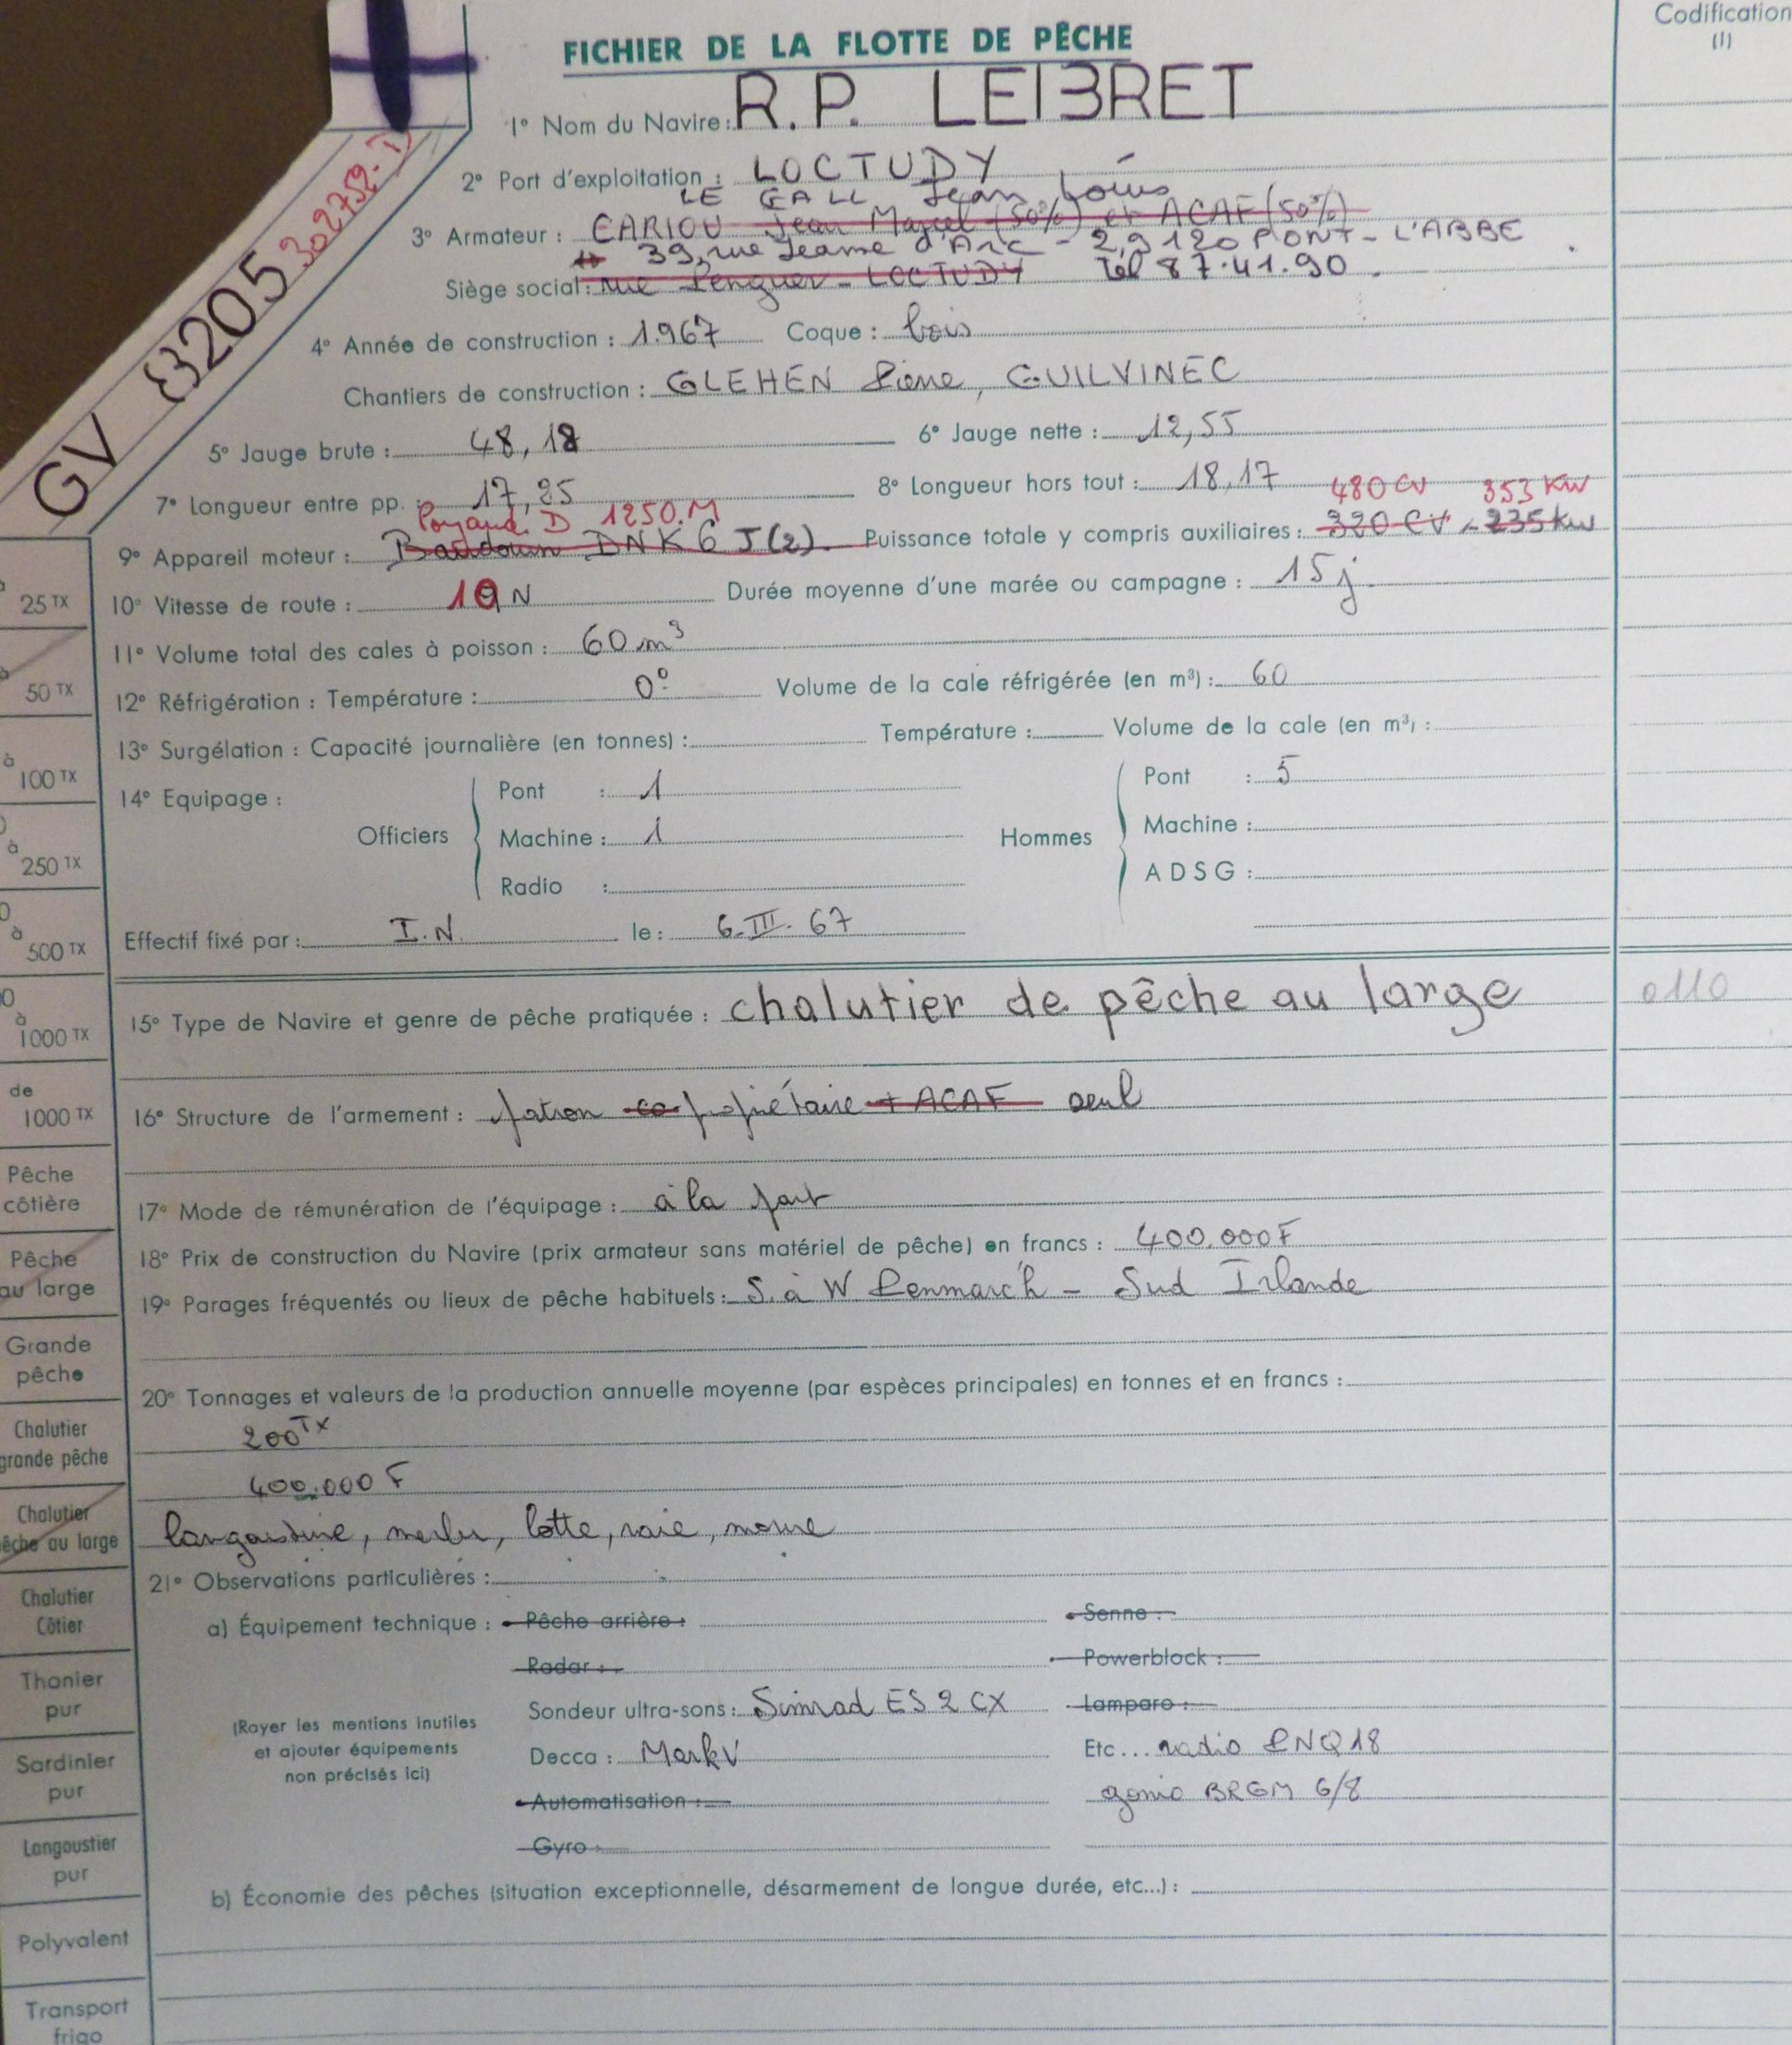 Codification
(1)
FICHIER DE LA FLOTTE DE PÊCHE
1° Nom du Navire : R.P. LEBRET
2° Port d'exploitation : LOCTUDY
LE GALL Jean Louis
3° Armateur : CARIOU Jean Marcel (50%) et ACAF (50%)
39, rue Jeanne d'Arc - 29120 PONT-L'ABBE
Siège social : rue Penquer - LOCTUDY Tél 87.41.90.
GV 8205 302752
4° Année de construction : 1.967 Coque : bois
Chantiers de construction : GLEHEN Pierre, GUILVINEC
5° Jauge brute : 48,18 6° Jauge nette : 12,55
7° Longueur entre pp. : 17,25 8° Longueur hors tout : 18,17
Poyaud D 1250.M 480 CV 353 KW
9° Appareil moteur : Baudouin DNK 6 J(2) Puissance totale y compris auxiliaires : 320 CV - 235 kw
10° Vitesse de route : 10 N Durée moyenne d'une marée ou campagne : 15 j
11° Volume total des cales à poisson : 60 m³
12° Réfrigération : Température : 0° Volume de la cale réfrigérée (en m³) : 60
13° Surgélation : Capacité journalière (en tonnes) : Température : Volume de la cale (en m³) :
14° Equipage :
Officiers
Pont : 1
Machine : 1
Radio :
Hommes
Pont : 5
Machine :
A D S G :
Effectif fixé par : I.N. le : 6.III.67
15° Type de Navire et genre de pêche pratiquée : chalutier de pêche au large
0110
16° Structure de l'armement : patron co-propriétaire + ACAF seul
17° Mode de rémunération de l'équipage : à la part
18° Prix de construction du Navire (prix armateur sans matériel de pêche) en francs : 400.000 F
19° Parages fréquentés ou lieux de pêche habituels : S. à W Penmarc'h - Sud Irlande
20° Tonnages et valeurs de la production annuelle moyenne (par espèces principales) en tonnes et en francs :
200 Tx
400.000 F
langoustine, merlu, lotte, raie, morue
21° Observations particulières :
a) Équipement technique : Pêche arrière : Senne :
Radar : Powerblock :
Sondeur ultra-sons : Simrad ES 2 CX Lamparo :
(Rayer les mentions inutiles
et ajouter équipements
non précisés ici)
Decca : Mark V Etc... radio PNQ18
Automatisation : gonio BRGM 6/8
Gyro :
b) Économie des pêches (situation exceptionnelle, désarmement de longue durée, etc...) :
25 TX
50 TX
à
100 TX
à
250 TX
à
500 TX
à
1000 TX
de
1000 TX
Pêche
côtière
Pêche
au large
Grande
pêche
Chalutier
grande pêche
Chalutier
pêche au large
Chalutier
Côtier
Thonier
pur
Sardinier
pur
Langoustier
pur
Polyvalent
Transport
frigo